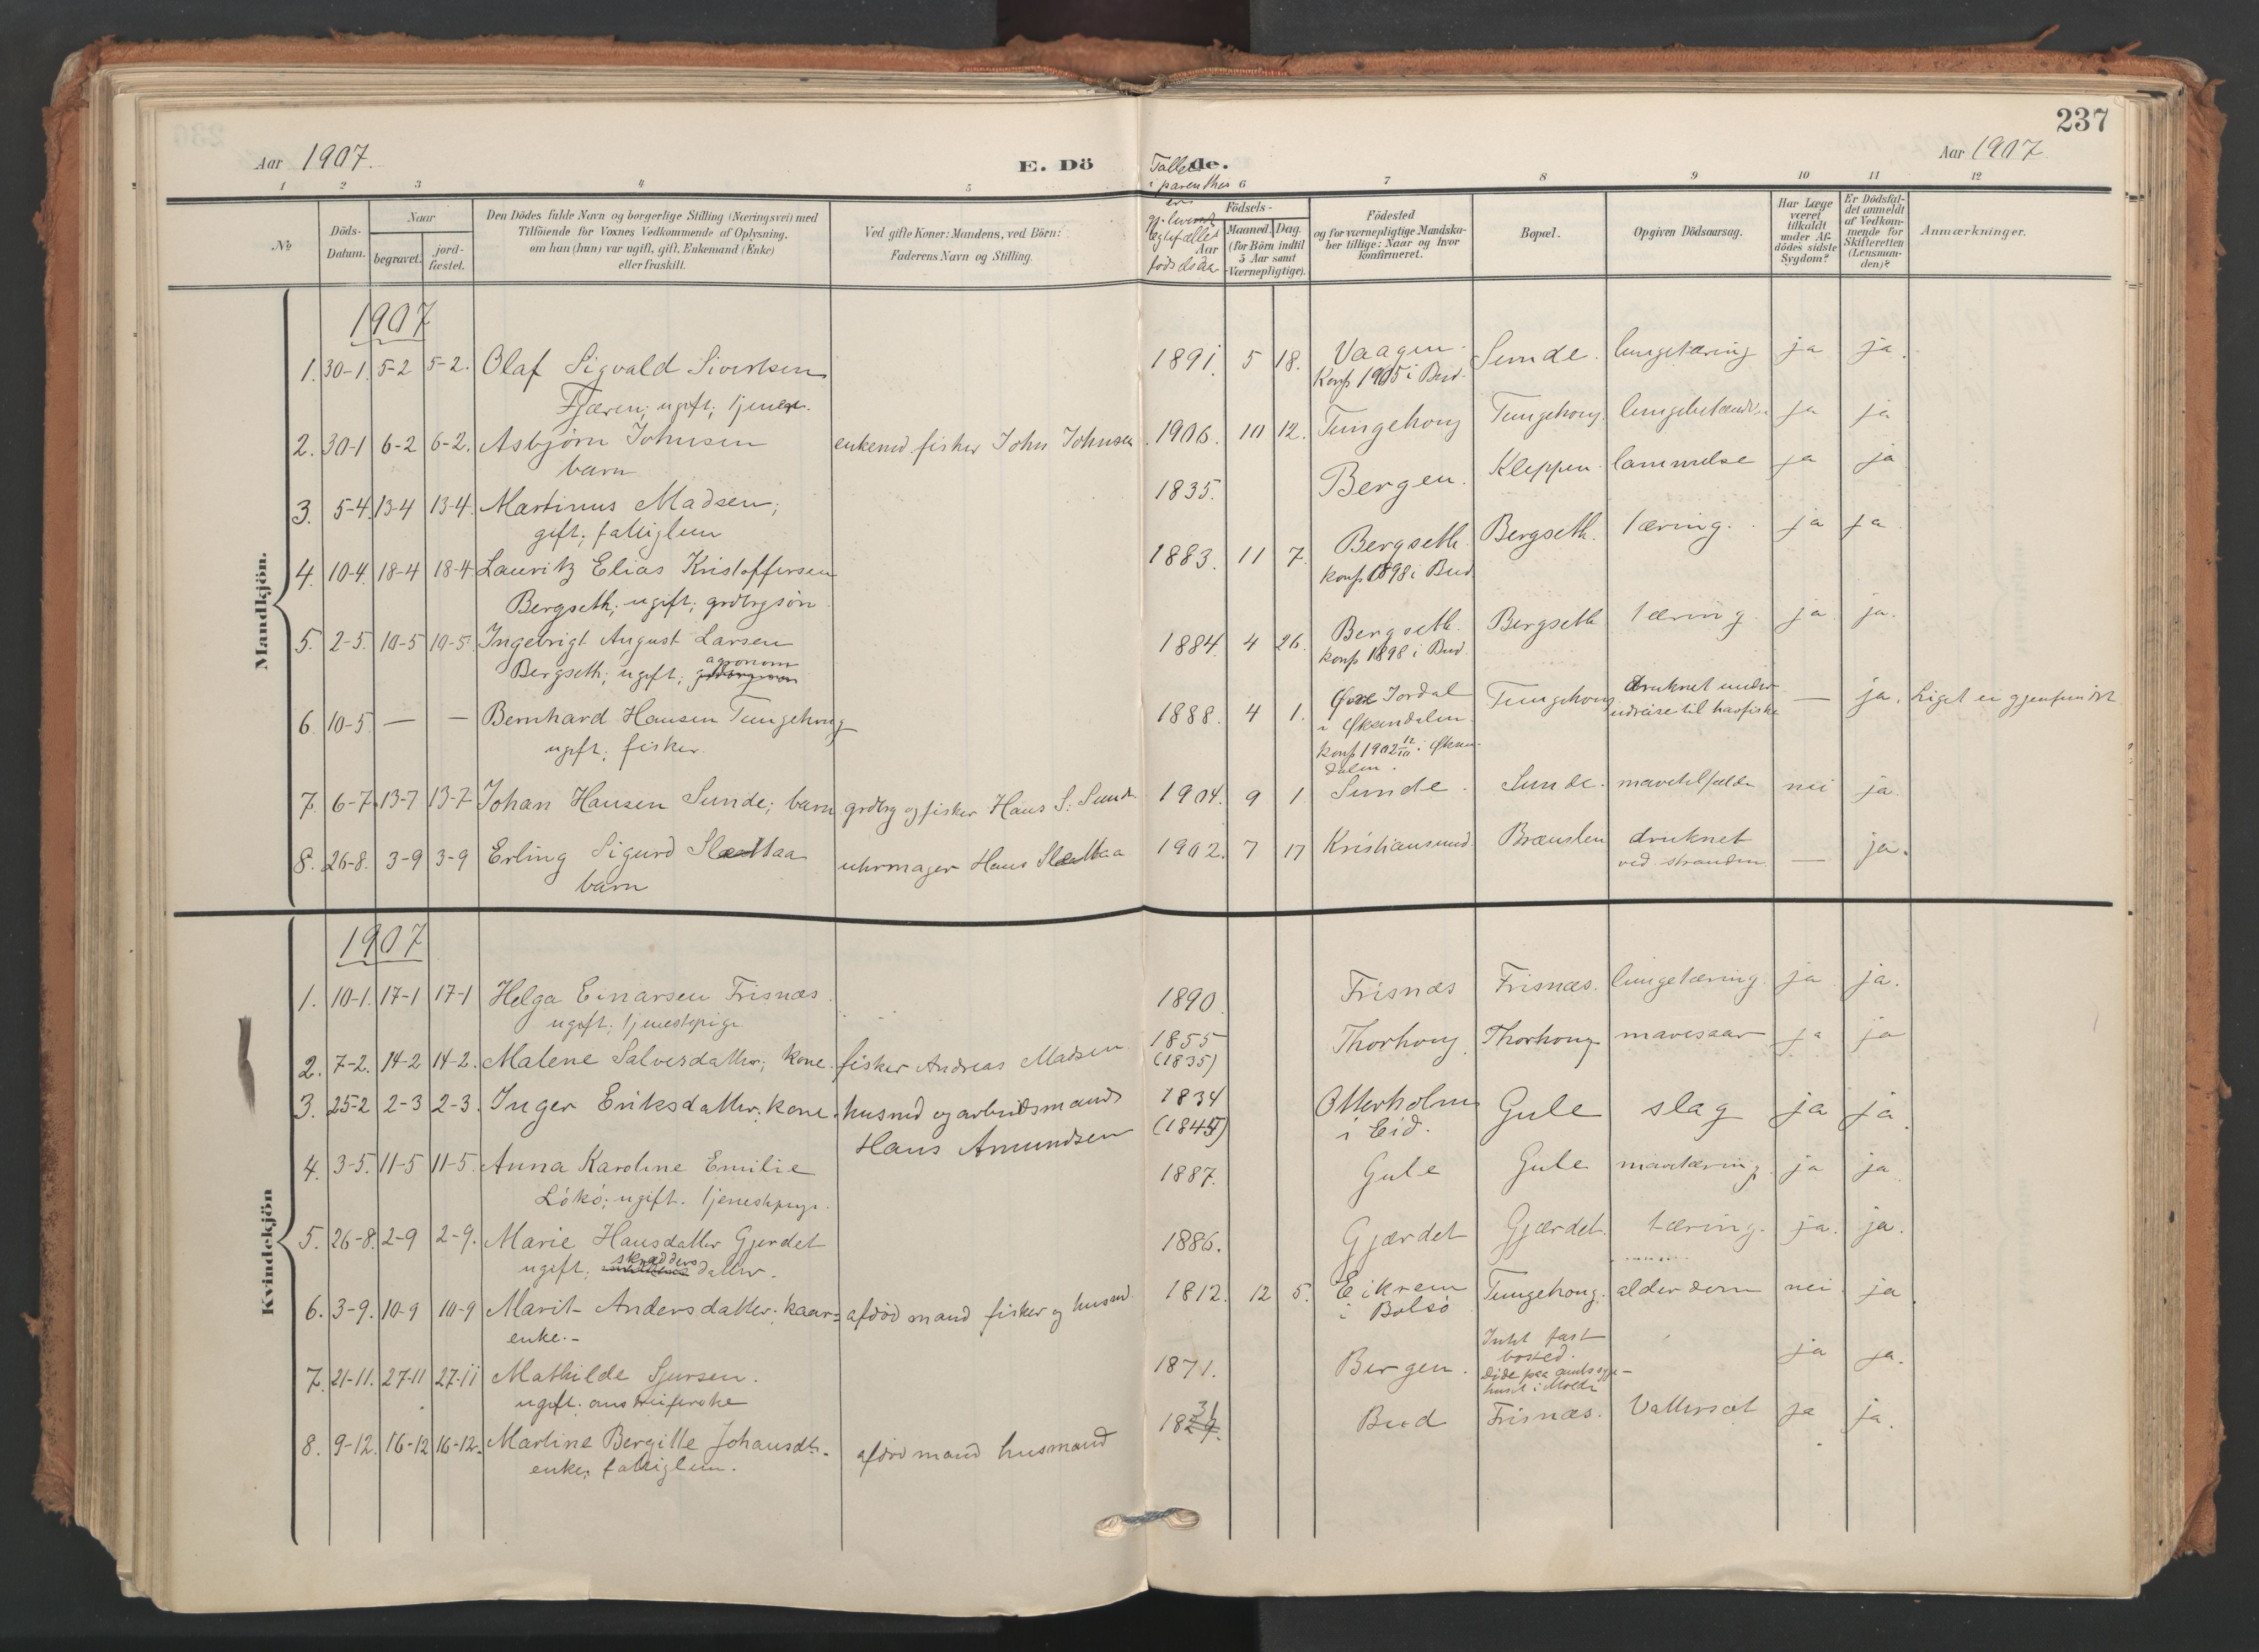 237
Aar 1907.
E. Döde.
Aar 1907
1 2 3 4 5 6 7 8 9 10 11 12
No
Döds-Datum.
Naar
begravet.
jord-fæstet.
Den Dödes fulde Navn og borgerlige Stilling (Næringsvei) med
Tilföiende for Voxnes Vedkommende af Oplysning,
om han (hun) var ugift, gift, Enkemand (Enke)
eller fraskilt.
Ved gifte Koner: Mandens, ved Börn:
Faderens Navn og Stilling.
i parenthes
er
Födsels-
Aar
Maaned. Dag.
(for Börn indtil
5 Aar samt
Værnepligtige).
Födested
og for værnepligtige Mandska-
ber tillige: Naar og hvor
konfirmeret.
Bopæl.
Opgiven Dödsaarsag.
Har Læge
været
tilkaldt
under Af-
dödes sidste
Sygdom?
Er Dödsfal-
det anmeldt
af Vedkom-
mende for
Skifteretten
(Lensman-
den)?
Anmærkninger.
Mandkjön.
1907
1. 30-1. 5-2 5-2. Olaf Sigvald Sivertsen 1891. 5 18. Vaagen. Sunde. lungetæring ja ja.
Fjæren; ugift; tjener. Konf 1905 i Bud.
2. 30-1 6-2 6-2. Asbjörn Johnsen enkemd. fisker John Johnsen. 1906. 10 12. Tungehoug Tungehoug. ja ja
barn
3. 5-4. 13-4 13-4. Martinus Madsen; 1835. Bergen. Kleppen. lammelse ja ja
gift; fattiglem
4. 10-4. 18-4 18-4 Lauritz Elias Kristoffersen 1883. 11 7. Bergseth. Bergseth. tæring. ja ja.
Bergseth; ugift; grdbrgsön konf 1898 i Bud
5. 2-5. 10-5 10-5 Ingebrigt August Larsen 1884. 4 26. Bergseth. Bergseth tæring. ja ja.
agronom
Bergseth; ugift; konf 1898 i Bud.
6. 10-5. — — Bernhard Hansen Tungehoug 1888. 4 1. Jordal Tungehoug druknet under — ja. Liget ei gjenfundet
i Øksendalen udreise til havfiske
ugift; fisker. konf 1902 12/10 i Øksen-
dalen.
7. 6-7. 13-7 13-7 Johan Hansen Sunde; barn grdbrg og fisker Hans S. Sunde 1904. 9 1 Sunde. Sunde. mavetilfælde nei ja.
8. 26-8. 3-9 3-9 Erling Sigurd Slættaa uhrmager Hans Slættaa 1902. 7 17 Kristiansund. druknet — ja.
barn ved stranden.
Kvindekjön
1907
1. 10-1. 17-1 17-1 Helga Einarsen Frisnæs. 1890. Frisnæs Frisnæs. lungetæring. ja ja.
ugift; tjenestepige
2. 7-2. 14-2 14-2. Malene Salvesdatter; kone. fisker Andreas Madsen. 1855 Thorhoug. Thorhoug mavesaar ja ja
(1835)
3. 25-2 2-3 2-3. Inger Eriksdatter; kone. husmd og arbeidsmand 1834 Otterholm Gule slag ja ja.
Hans Amundsen i Eid.
4. 3-5. 11-5 11-5. Anna Karoline Emilie 1887. Gule Gule mavetæring. ja ja.
Lökö; ugift. tjenestepige.
5. 26-8. 2-9 2-9. Marie Hansdatter Gjerdet 1886. Gjærdet Gjærdet. tæring. ja. ja.
ugift. skrædders datter.
6. 3-9. 10-9 10-9 Marit Andersdatter; kaar= aftöd mand fisker og husmd. 1812. 12 5. Eikrem Tungehoug. alderdom nei ja.
enke.- i Bolsö
7. 21-11. 27-11 27-11 Mathilde Sjursen. 1871. Bergen. Intet fast ja ja.
bosted.
Döde paa amtssyge-
huset i Molde
ugift.
8. 9-12. 16-12 16-12. Martine Bergitte Johansdtr. afdöd mand husmand 1831 Bud Frisnæs. Vattersot ja ja.
enke; fattiglem.